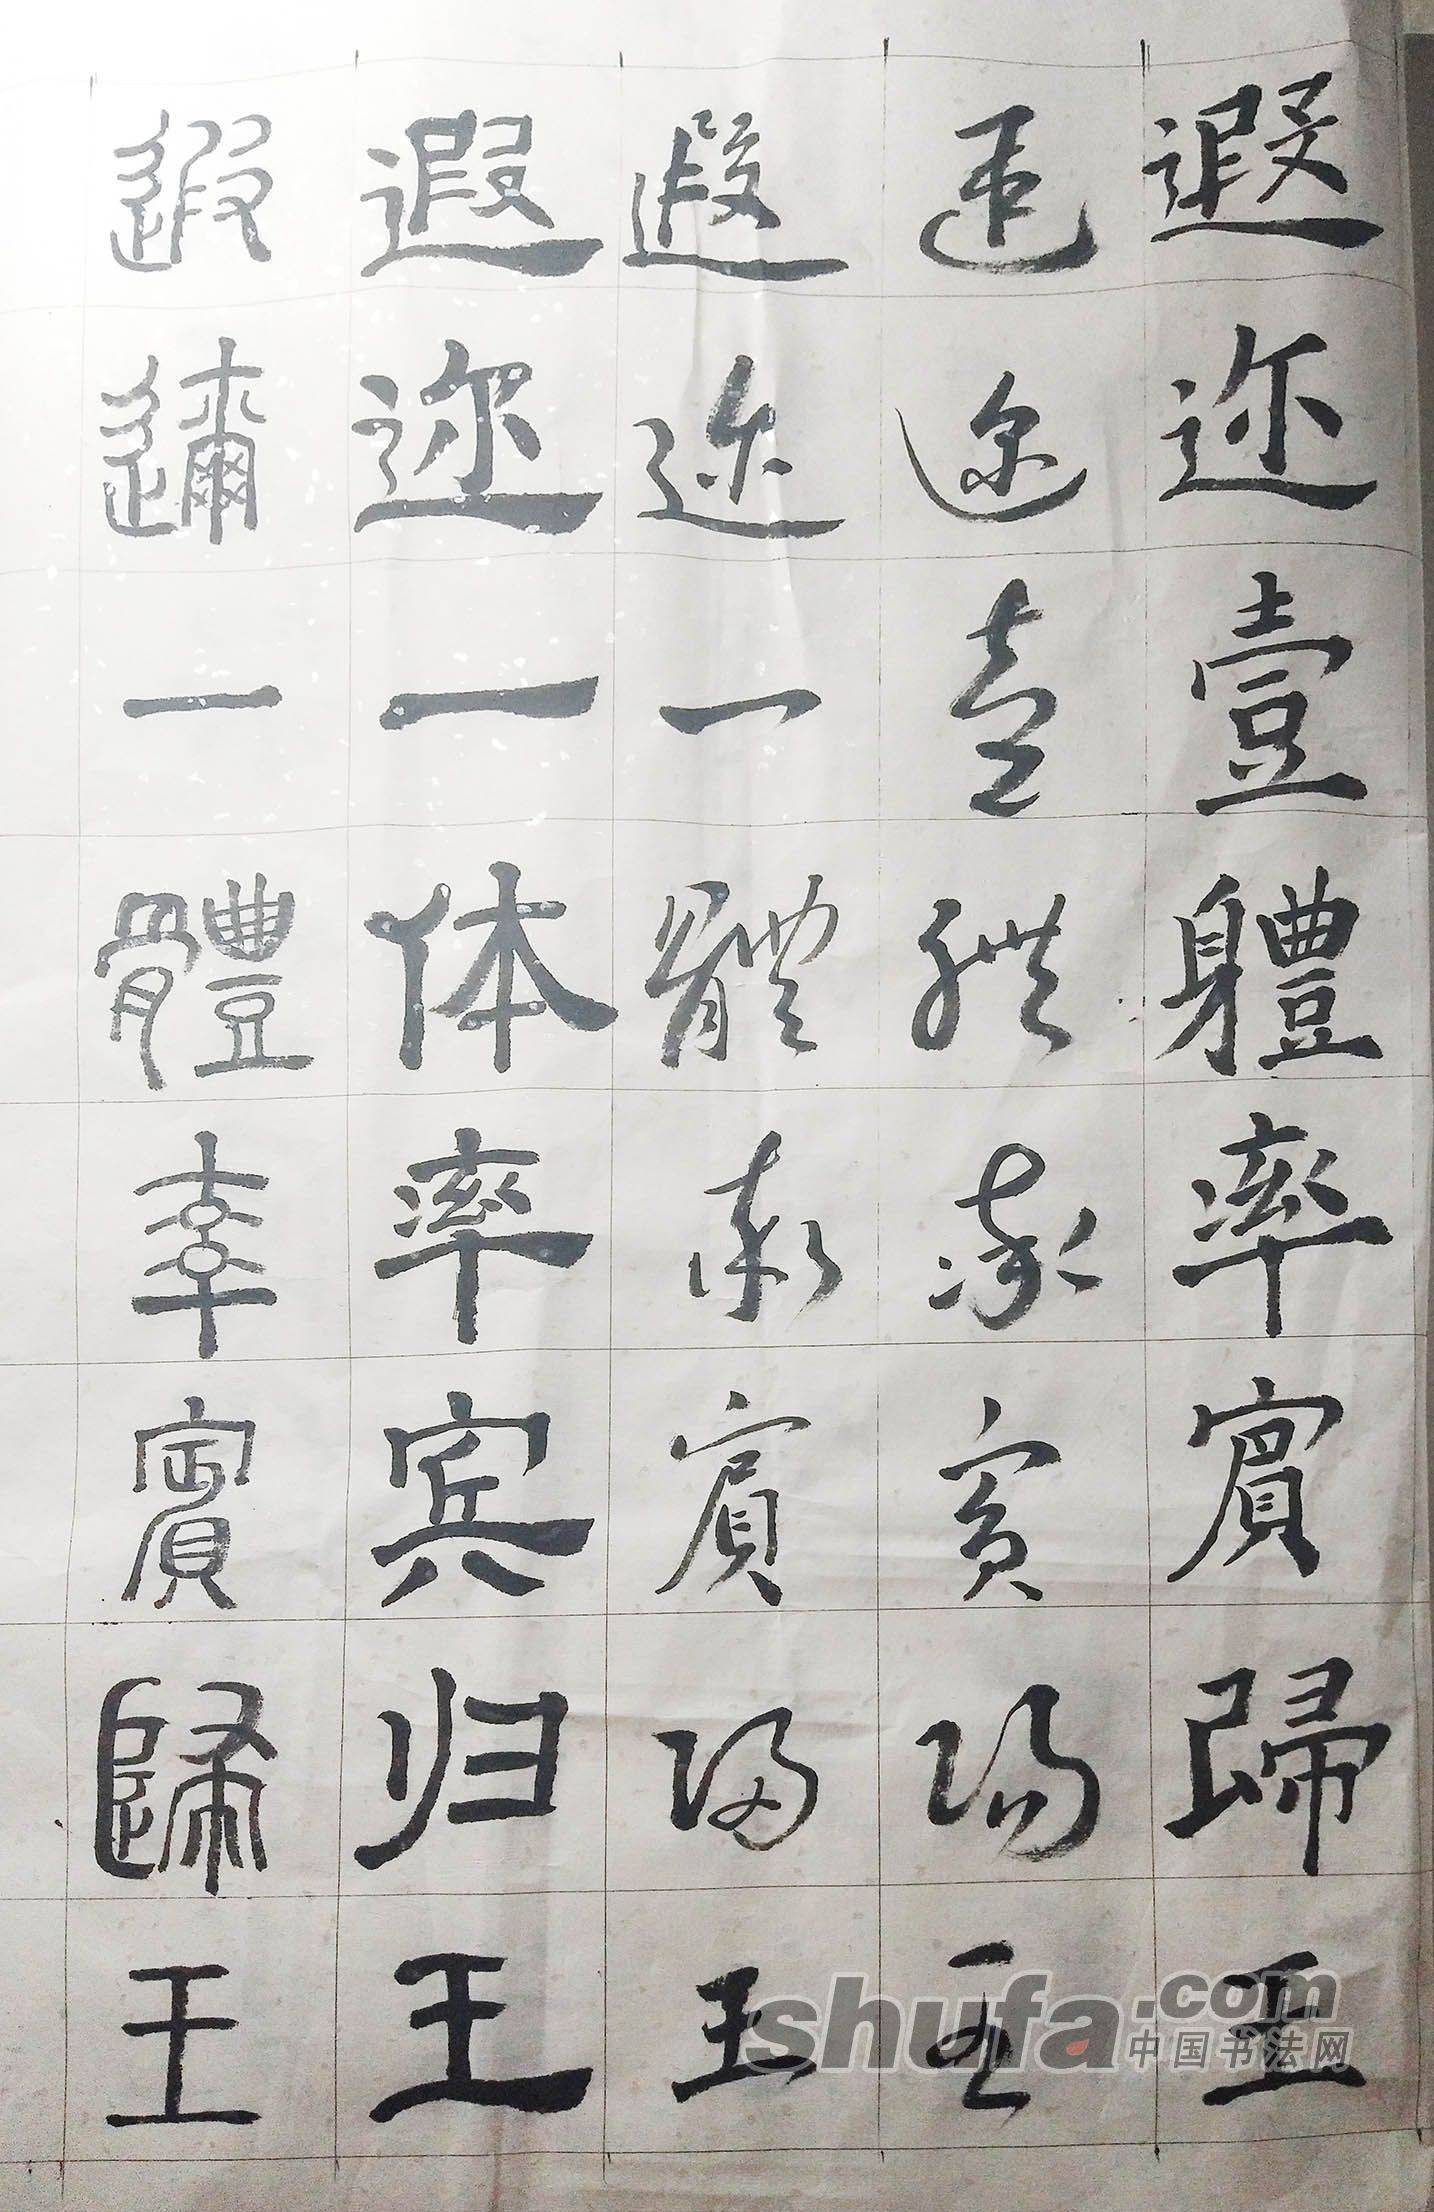 遐迩壹軆率賔歸王
遐迩壹體率賓歸王
遐迩一體率賓歸王
遐迩一体率宾归王
遐邇一體率賓歸王
shufa.com
中国书法网